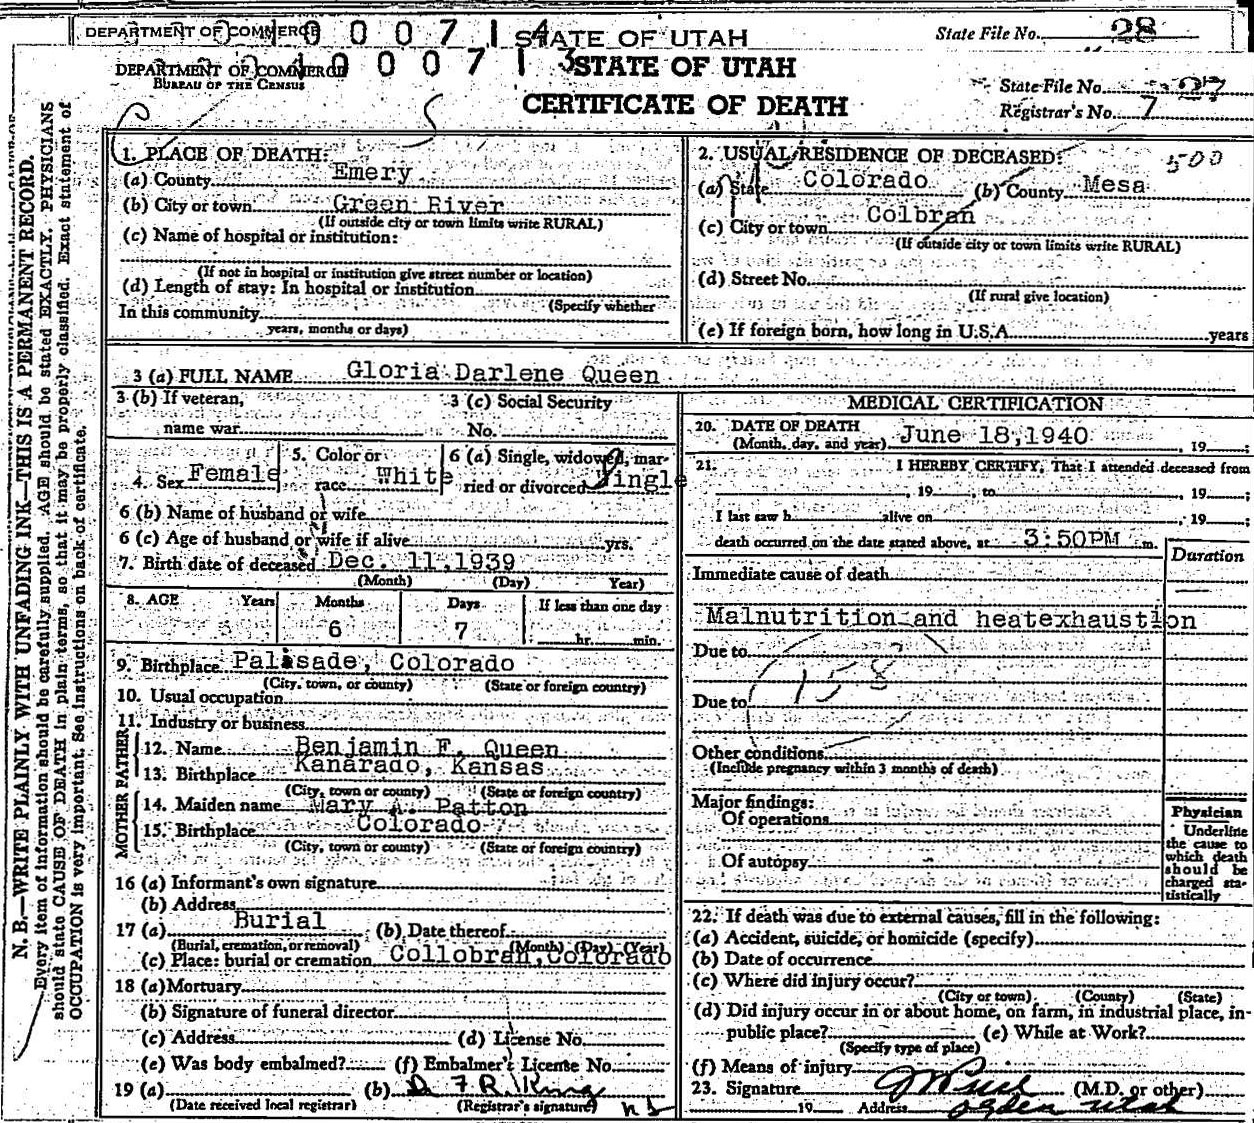 DEPARTMENT OF COMMERCE 000714 STATE OF UTAH State File No. 28
DEPARTMENT OF COMMERCE 000713 STATE OF UTAH
BUREAU OF THE CENSUS
State File No. 27
CERTIFICATE OF DEATH
Registrar's No. 7
N. B.—WRITE PLAINLY WITH UNFADING INK—THIS IS A PERMANENT RECORD.
Every item of information should be carefully supplied. AGE should be stated EXACTLY. PHYSICIANS
should state CAUSE OF DEATH in plain terms, so that it may be properly classified. Exact statement of
OCCUPATION is very important. See instructions on back of certificate.
1. PLACE OF DEATH:
(a) County Emery
(b) City or town Green River
(If outside city or town limits write RURAL)
(c) Name of hospital or institution:
(If not in hospital or institution give street number or location)
(d) Length of stay: In hospital or institution
(Specify whether
In this community
years, months or days)
2. USUAL RESIDENCE OF DECEASED: 500
(a) State Colorado (b) County Mesa
(c) City or town Colbran
(If outside city or town limits write RURAL)
(d) Street No.
(If rural give location)
(e) If foreign born, how long in U.S.A. years
3 (a) FULL NAME Gloria Darlene Queen
3 (b) If veteran, 3 (c) Social Security
name war No.
4. Sex Female 5. Color or race White 6 (a) Single, widowed, married or divorced Single
6 (b) Name of husband or wife
6 (c) Age of husband or wife if alive yrs.
7. Birth date of deceased Dec. 11,1939
(Month) (Day) Year)
8. AGE Years Months Days If less than one day
6 7 hr. min.
9. Birthplace Palisade, Colorado
(City, town, or county) (State or foreign country)
10. Usual occupation
11. Industry or business
FATHER
12. Name Benjamin F. Queen
13. Birthplace Kanarado, Kansas
(City, town or county) (State or foreign country)
MOTHER
14. Maiden name Mary A. Patton
15. Birthplace Colorado
(City, town or county) (State or foreign country)
16 (a) Informant's own signature
(b) Address
17 (a) Burial (b) Date thereof
(Burial, cremation, or removal) (Month) (Day) (Year)
(c) Place: burial or cremation Collobran, Colorado
18 (a) Mortuary
(b) Signature of funeral director
(c) Address (d) License No.
(e) Was body embalmed? (f) Embalmer's License No.
19 (a) (b) D F R King
(Date received local registrar) (Registrar's signature)
MEDICAL CERTIFICATION
20. DATE OF DEATH
(Month, day, and year) June 18,1940 , 19 ;
21. I HEREBY CERTIFY, That I attended deceased from
, 19 , to , 19 ;
I last saw h alive on , 19 ;
death occurred on the date stated above, at 3:50PM m.
Duration
Immediate cause of death
Malnutrition and heatexhaustion
Due to
158
Due to
Other conditions
(Include pregnancy within 3 months of death)
Major findings:
Of operations
Of autopsy
Physician
Underline
the cause to
which death
should be
charged sta-
tistically
22. If death was due to external causes, fill in the following:
(a) Accident, suicide, or homicide (specify)
(b) Date of occurrence
(c) Where did injury occur?
(City or town) (County) (State)
(d) Did injury occur in or about home, on farm, in industrial place, in-
public place? (e) While at Work?
(Specify type of place)
(f) Means of injury
23. Signature (M.D. or other)
19 Address Ogden Utah